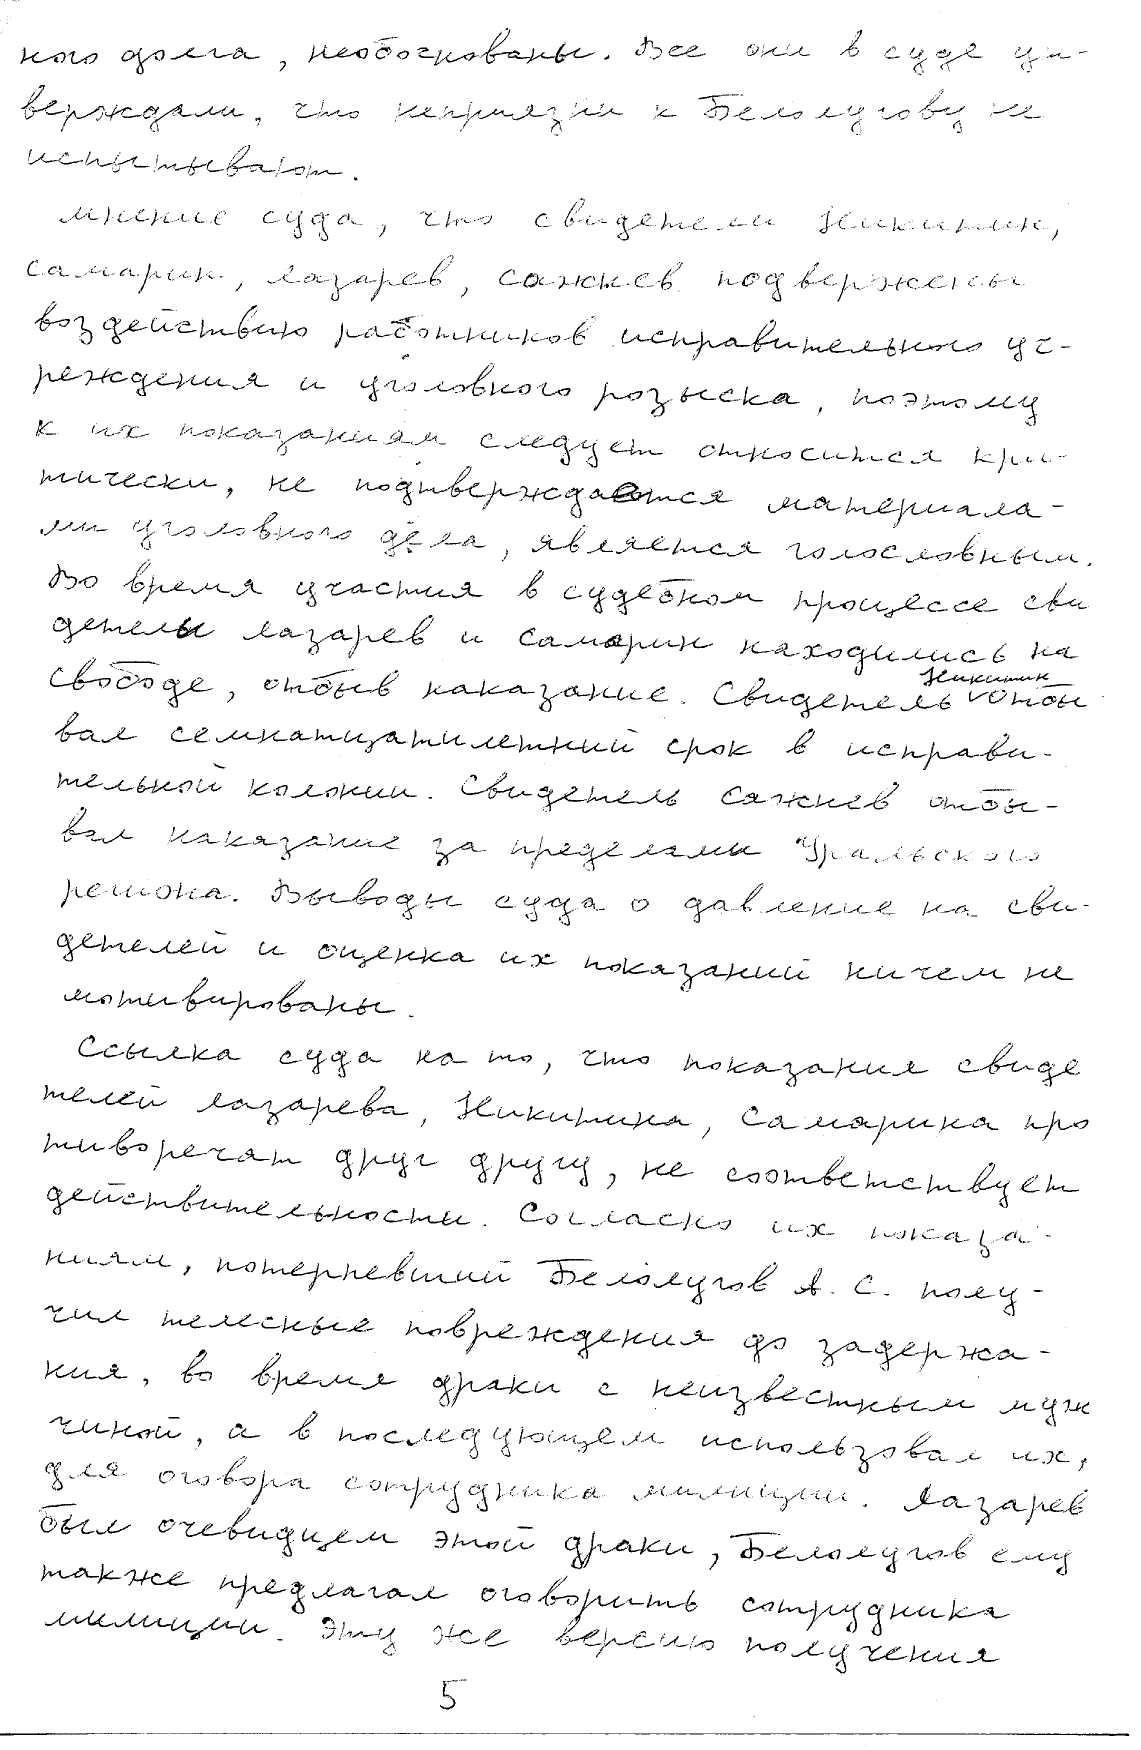 ного долга, необоснованы. Все они в суде ут-
верждали, что неприязни к Белолугову не
испытывают.
Мнение суда, что свидетели Никитин,
Самарин, Лазарев, Сажнев подвержены
воздействию работников исправительного уч-
реждения и уголовного розыска, поэтому
к их показаниям следует относится кри-
тически, не подтверждается материала-
ми уголовного дела, является голословным.
Во время участия в судебном процессе сви
детели Лазарев и Самарин находились на
свободе, отбыв наказание. Свидетель Никитин отбы
вал семнатцатилетний срок в исправи-
тельной колонии. Свидетель Сажнев отбы-
вал наказание за пределами Уральского
региона. Выводы суда о давление на сви-
детелей и оценка их показаний ничем не
мотивированы.
Ссылка суда на то, что показания свиде
телей Лазарева, Никитина, Самарина про
тиворечат друг другу, не соответствует
действительности. Согласно их показа-
ниям, потерпевший Белолугов А. С. полу-
чил телесные повреждения до задержа-
ния, во время драки с неизвестным муж
чиной, а в последующем использовал их,
для оговора сотрудника милиции. Лазарев
был очевидцем этой драки, Белолугов ему
также предлагал оговорить сотрудника
милиции. Эту же версию получения
5